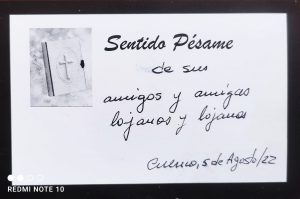 Sentido Pésame
de sus
amigos y amigas
lojanos y lojanas
Cuenca, 5 de Agosto/22
REDMI NOTE 10